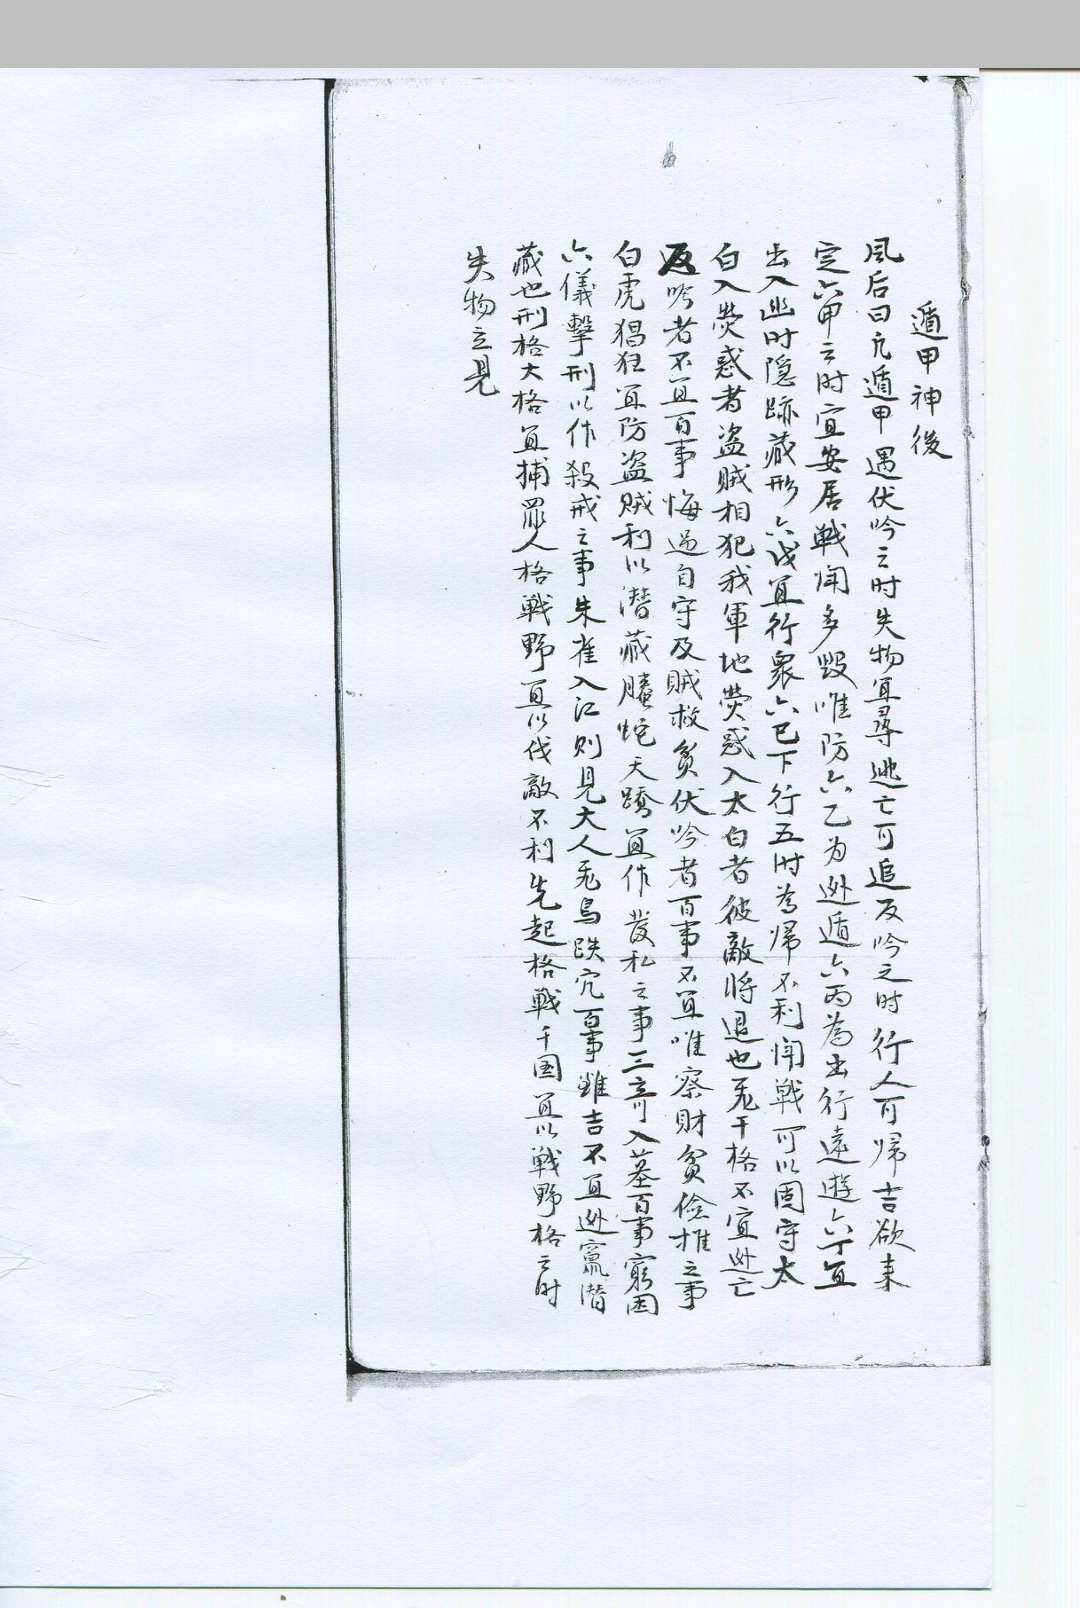 遁甲神後
風后曰凢遁甲遇伏吟之时失物宜尋逃亡可追反吟之时行人可帰吉欲来
定六甲云时宜安居戦闘多毀唯防六乙为逃遁六丙為出行遠遊六丁宜
出入逃时隠跡蔵形六戊宜行衆六己下行五时為帰不利闘戦可以固守太
白入熒惑者盗賊相犯我軍地熒惑入太白者彼敵将退也飛干格不宜逃亡
反吟者不宜百事悔過自守及賊救貧伏吟者百事不宜唯察財貧倹推之事
白虎猖狂宜防盗賊利以潜蔵螣蛇夭蹻宜作發私之事三奇入墓百事窮困
六儀擊刑以作殺戒之事朱雀入江則見大人飛鳥跌穴百事雖吉不宜逃竄潜
蔵也刑格大格宜捕罪人格戦野宜以伐敵不利先起格戦千国宜以戦野格之时
失物立見